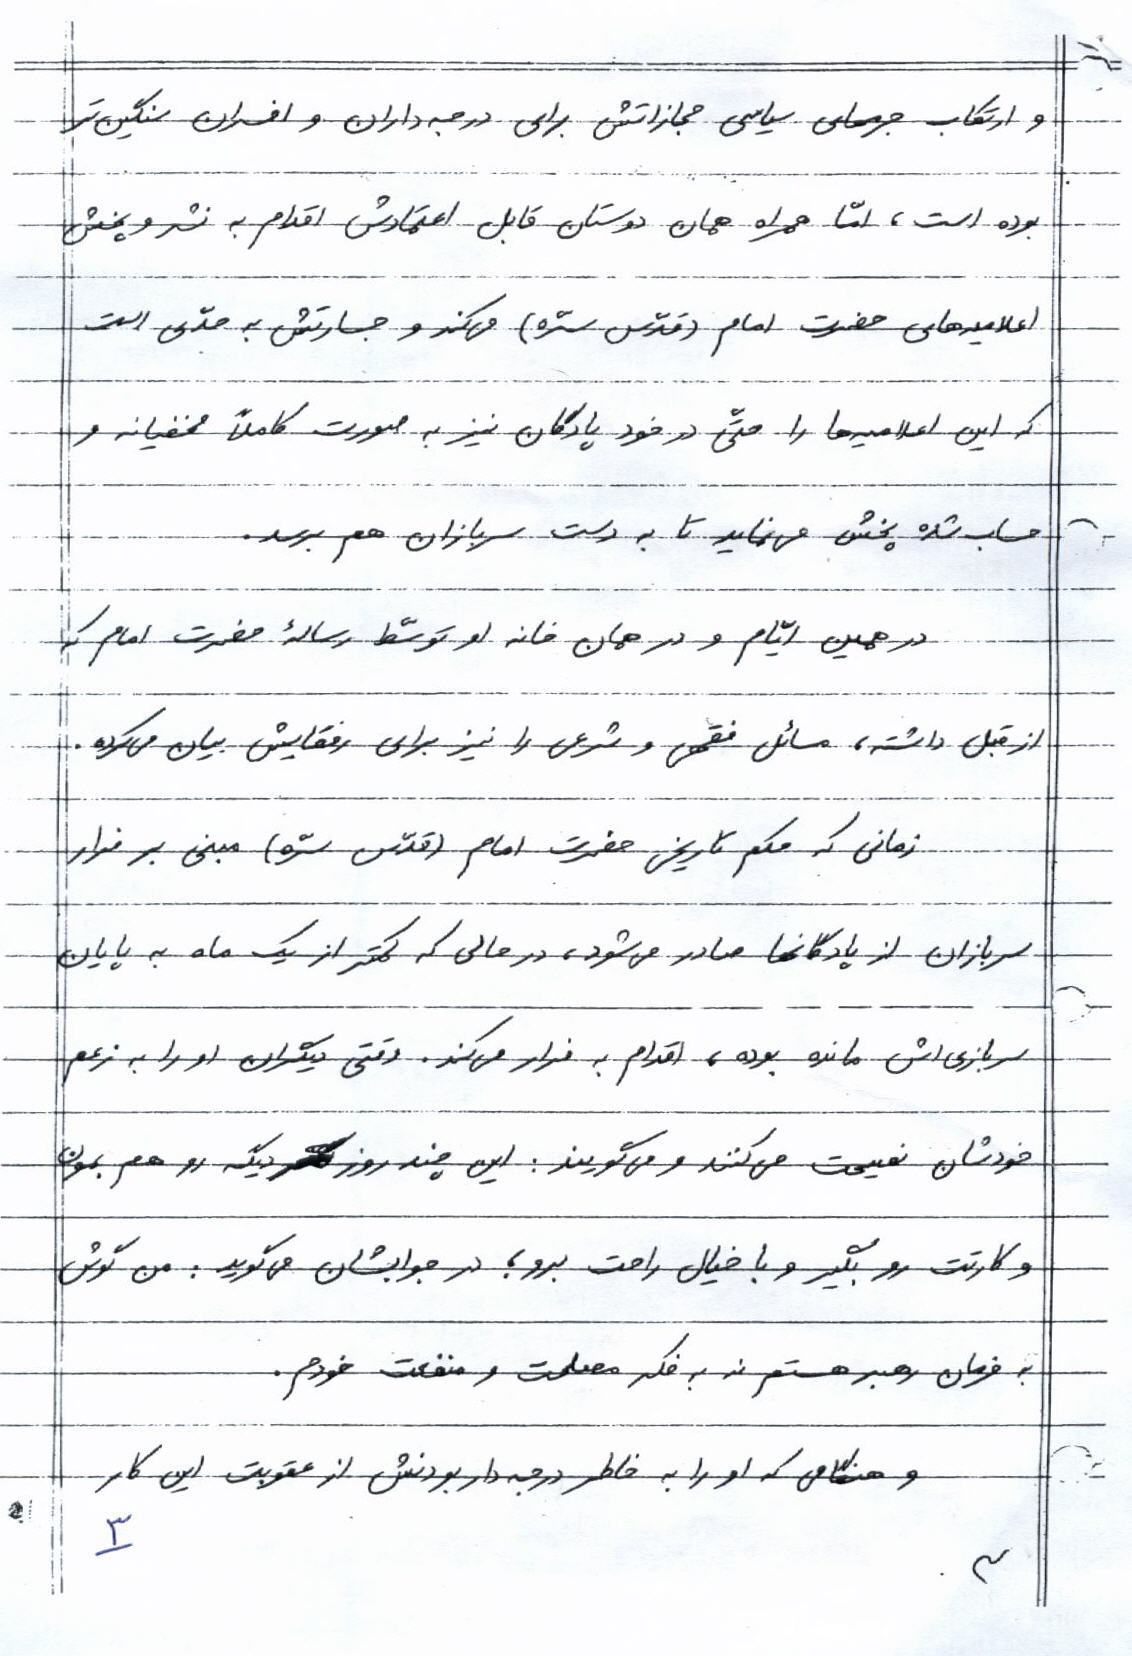 و ارتکاب جرمهای سیاسی مجازاتش برای درجه‌داران و افسران سنگین‌تر
بوده است، امّا همراه همان دوستان قابل اعتمادش اقدام به نشر و پخش
اعلامیه‌های حضرت امام (قدّس سرّه) می‌کند و جسارتش به حدّی است
که این اعلامیه‌ها را حتّی در خود پادگان نیز به صورت کاملاً مخفیانه و
حساب شده پخش می‌نماید تا به دست سربازان هم برسد.
در همین ایّام و در همان خانه او توسّط رسالهٔ حضرت امام که
از قبل داشته، مسائل فقهی و شرعی را نیز برای رفقایش بیان می‌کرده.
زمانی که حکم تاریخی حضرت امام (قدّس سرّه) مبنی بر فرار
سربازان از پادگانها صادر می‌شود، در حالی که کمتر از یک ماه به پایان
سربازی‌اش مانده بوده، اقدام به فرار می‌کند. وقتی دیگران او را به زعم
خودشان نصیحت می‌کنند و می‌گویند: این چند روز دیگه رو هم بمون
و کارتت رو بگیر و با خیال راحت برو؛ در جوابشان می‌گوید: من گوش
به فرمان رهبر هستم نه به فکر مصلحت و منفعت خودم.
و هنگامی که او را به خاطر درجه‌دار بودنش از عقوبت این کار
۳